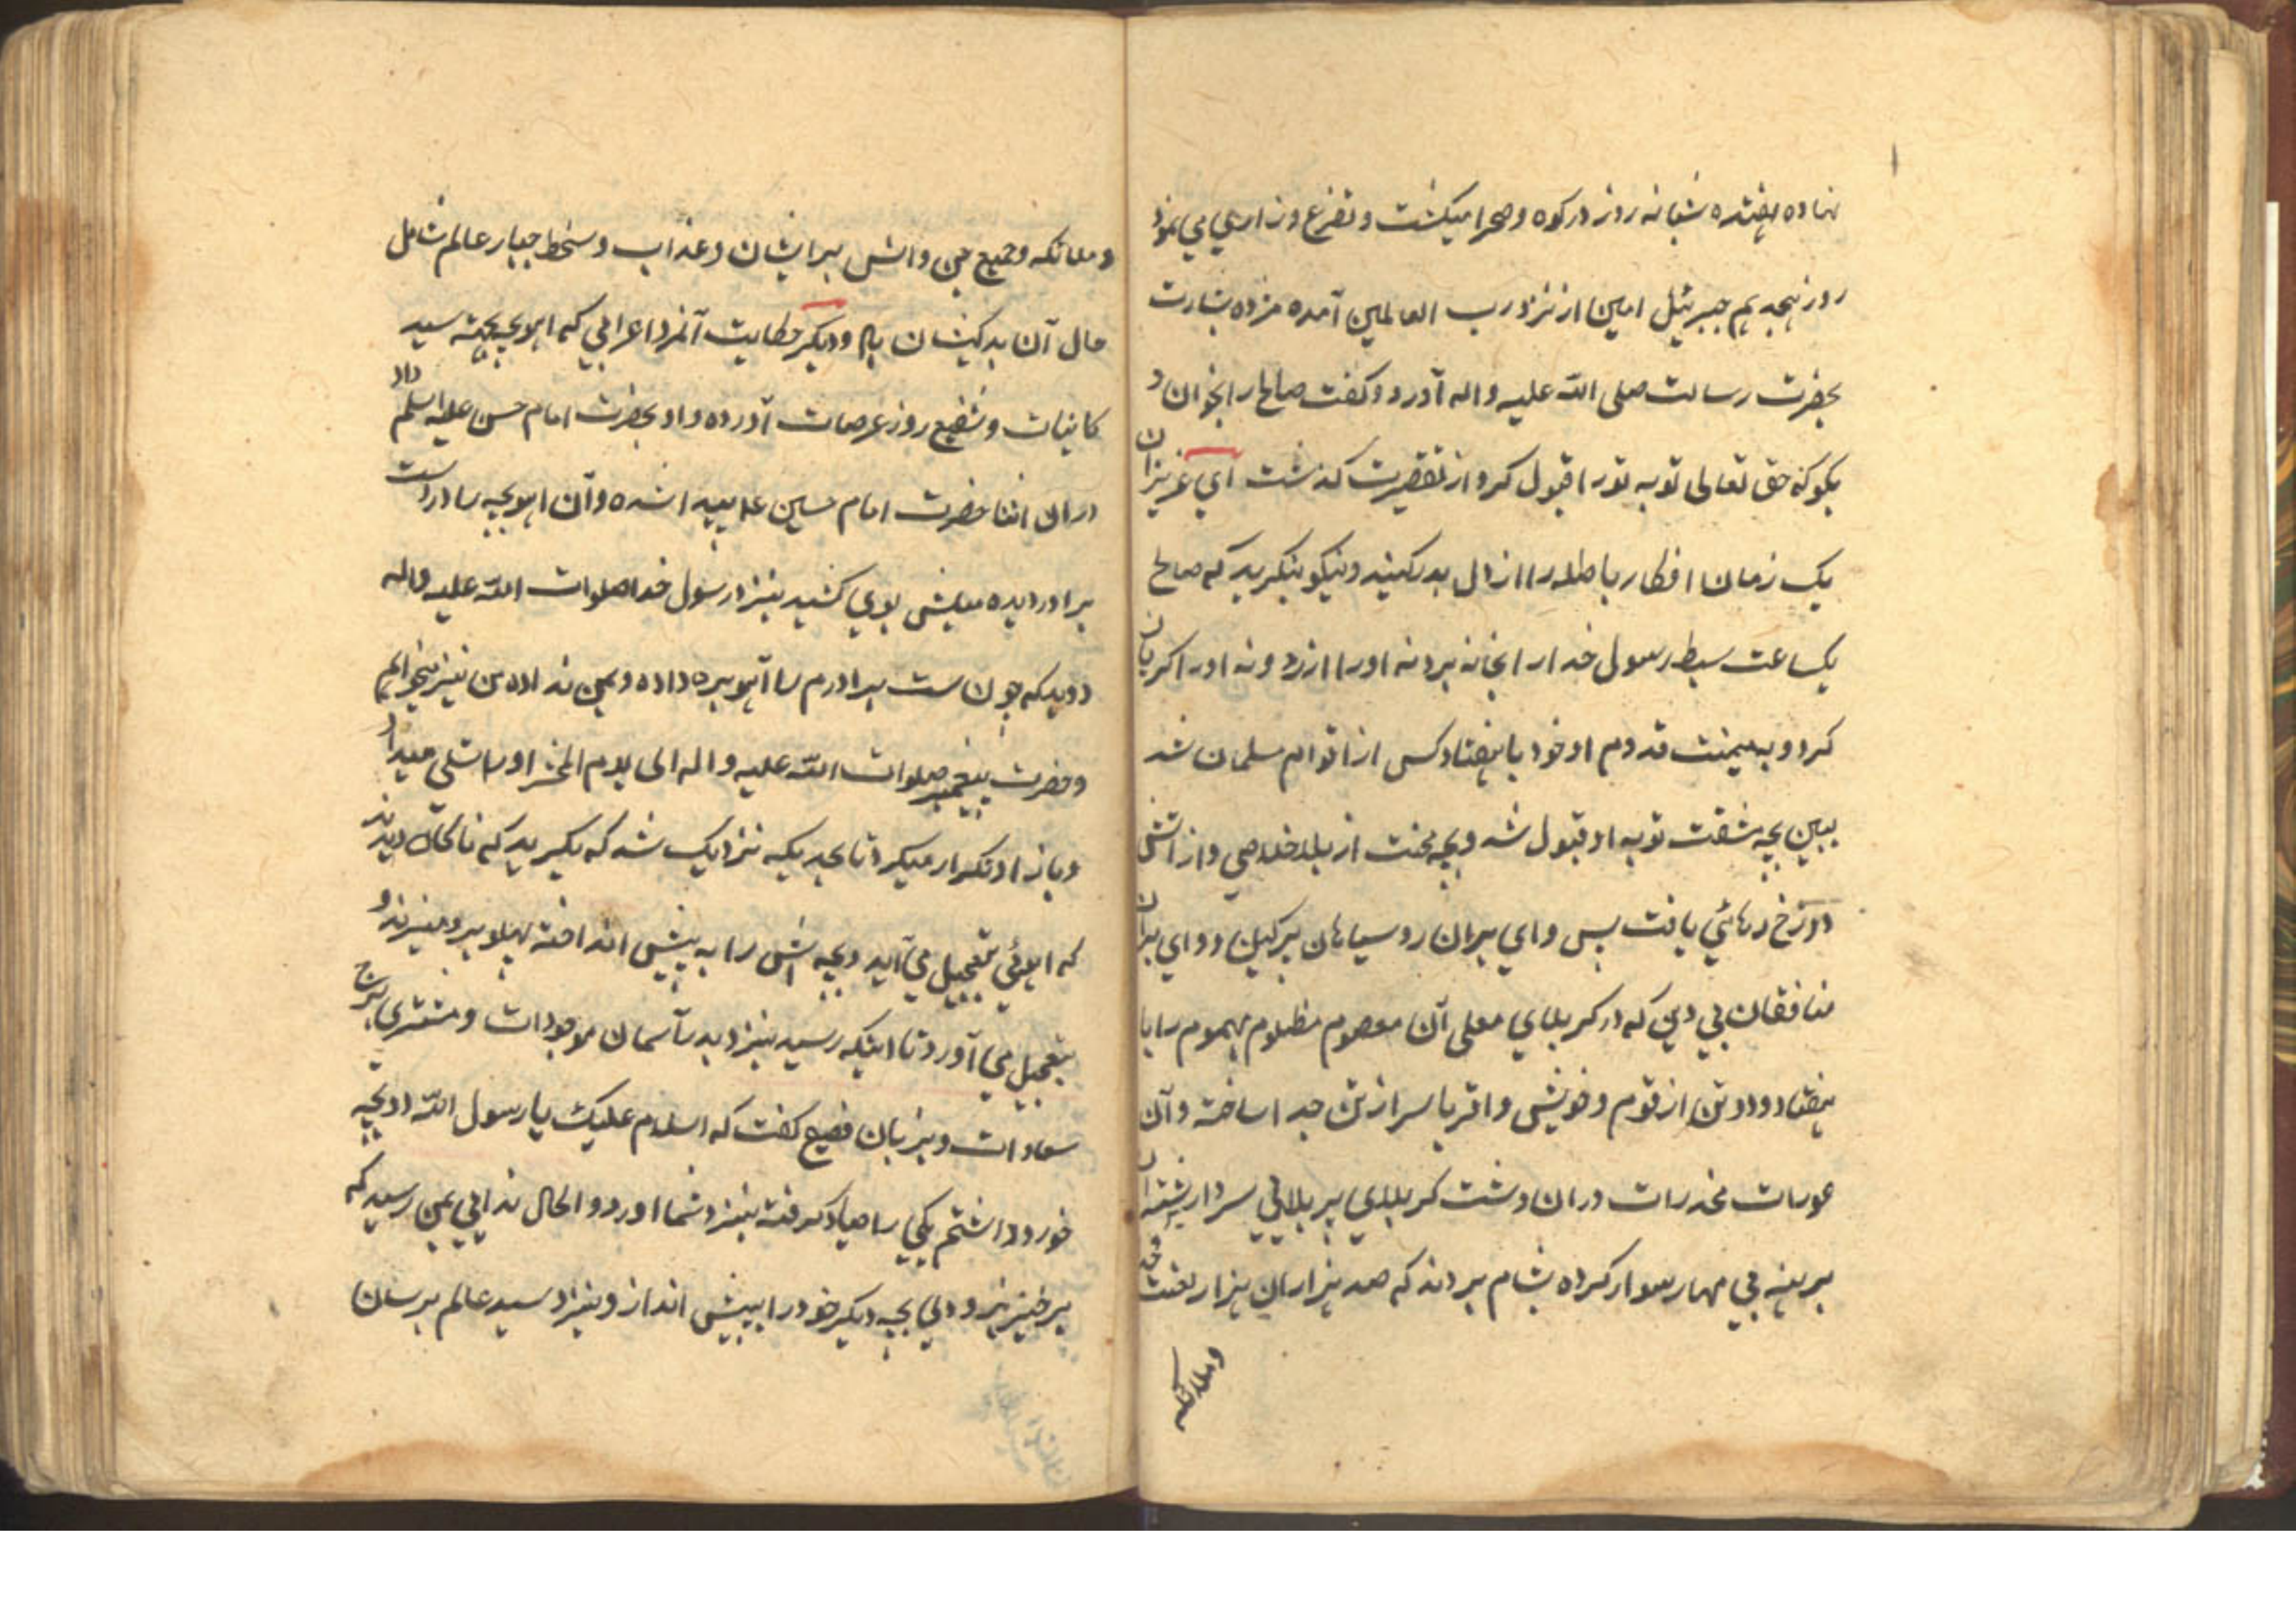 نهاده هفده شبانه روز در کوه و صحرا میکشت و تضرع و زاری می نمود
روز هجدهم جبرئیل امین از نزد رب العالمین آمده مژده بشارت
بحضرت رسالت صلی الله علیه واله آورد و کفت صالح را بخوان و
بکو که حق تعالی توبه تو را قبول کرد و از تقصیرت کذشت آی عزیزان
یک زمان افکار باطله را از دل بدر کنید و نیکو بنکرید که صالح
یکساعت سبط رسول خدا را بخانه برد نه او را ازرد و نه او را کریان
کرد و به میمنت قدوم او خود با هفتاد کس از اقوام مسلمان شد
ببین بچه مشقت توبه او قبول شد و بچه محنت از بلا خلاصی و از اتش
دوزخ رهائی یافت پس وای بران روسیاهان پرکین و وای بران
منافقان بی دین که در کربلای معلی آن معصوم مظلوم مهموم را با
هفتاد و دو تن از قوم و خویش و اقربا سر از تن جدا ساخته و آن
عورات مخدرات در ان دشت کربلای پر بلا بی سردار بشتران
برهنه بی مهار سوار کرده بشام بردند که صد هزاران هزار لعنت خدا
وملائکه
و ملائکه و جمیع جن و انس بر ایشان و عذاب و سخط جبار عالم شامل
حال آن بدکیشان باد و دیکر حکایت آنمرد اعرابی که اهو بچه بجهة سید
کاینات و شفیع روز عرصات آورده و او بحضرت امام حسن علیه اسلم داد
در ان اثنا حضرت امام حسین ع پیدا شده و آن اهو بچه را در دست
برادر دیده پیش بوی کشید بنزد رسول خدا صلوات الله علیه واله
دوید که چون است برادرم را آهو بره داده و بمن نداده من نیز میخواهم
و حضرت پیغمبر صلوات الله علیه و اله الی یوم المحشر او را تسلی میداد
و باز او تکرار میکرد تا بحدیکه نزدیک شد که بکرید که ناکاه دیدند
که اهوئی بتعجیل می آید و بچه اش را به پیش انداخته پهلو برو میزند و
بتعجیل می آورد تا اینکه رسید بنزد بدر آسمان موجودات و مشتری برج
سعادات و بزبان فصیح کفت که اسلام علیک یا رسول الله دو بچه
خورد داشتم یکی را صیاد کرفته بنزد شما اورد و الحال ندایی بمن رسید که
برخیز بزودی بچه دیکر خود را به پیش انداز و بنزد سید عالم برسان